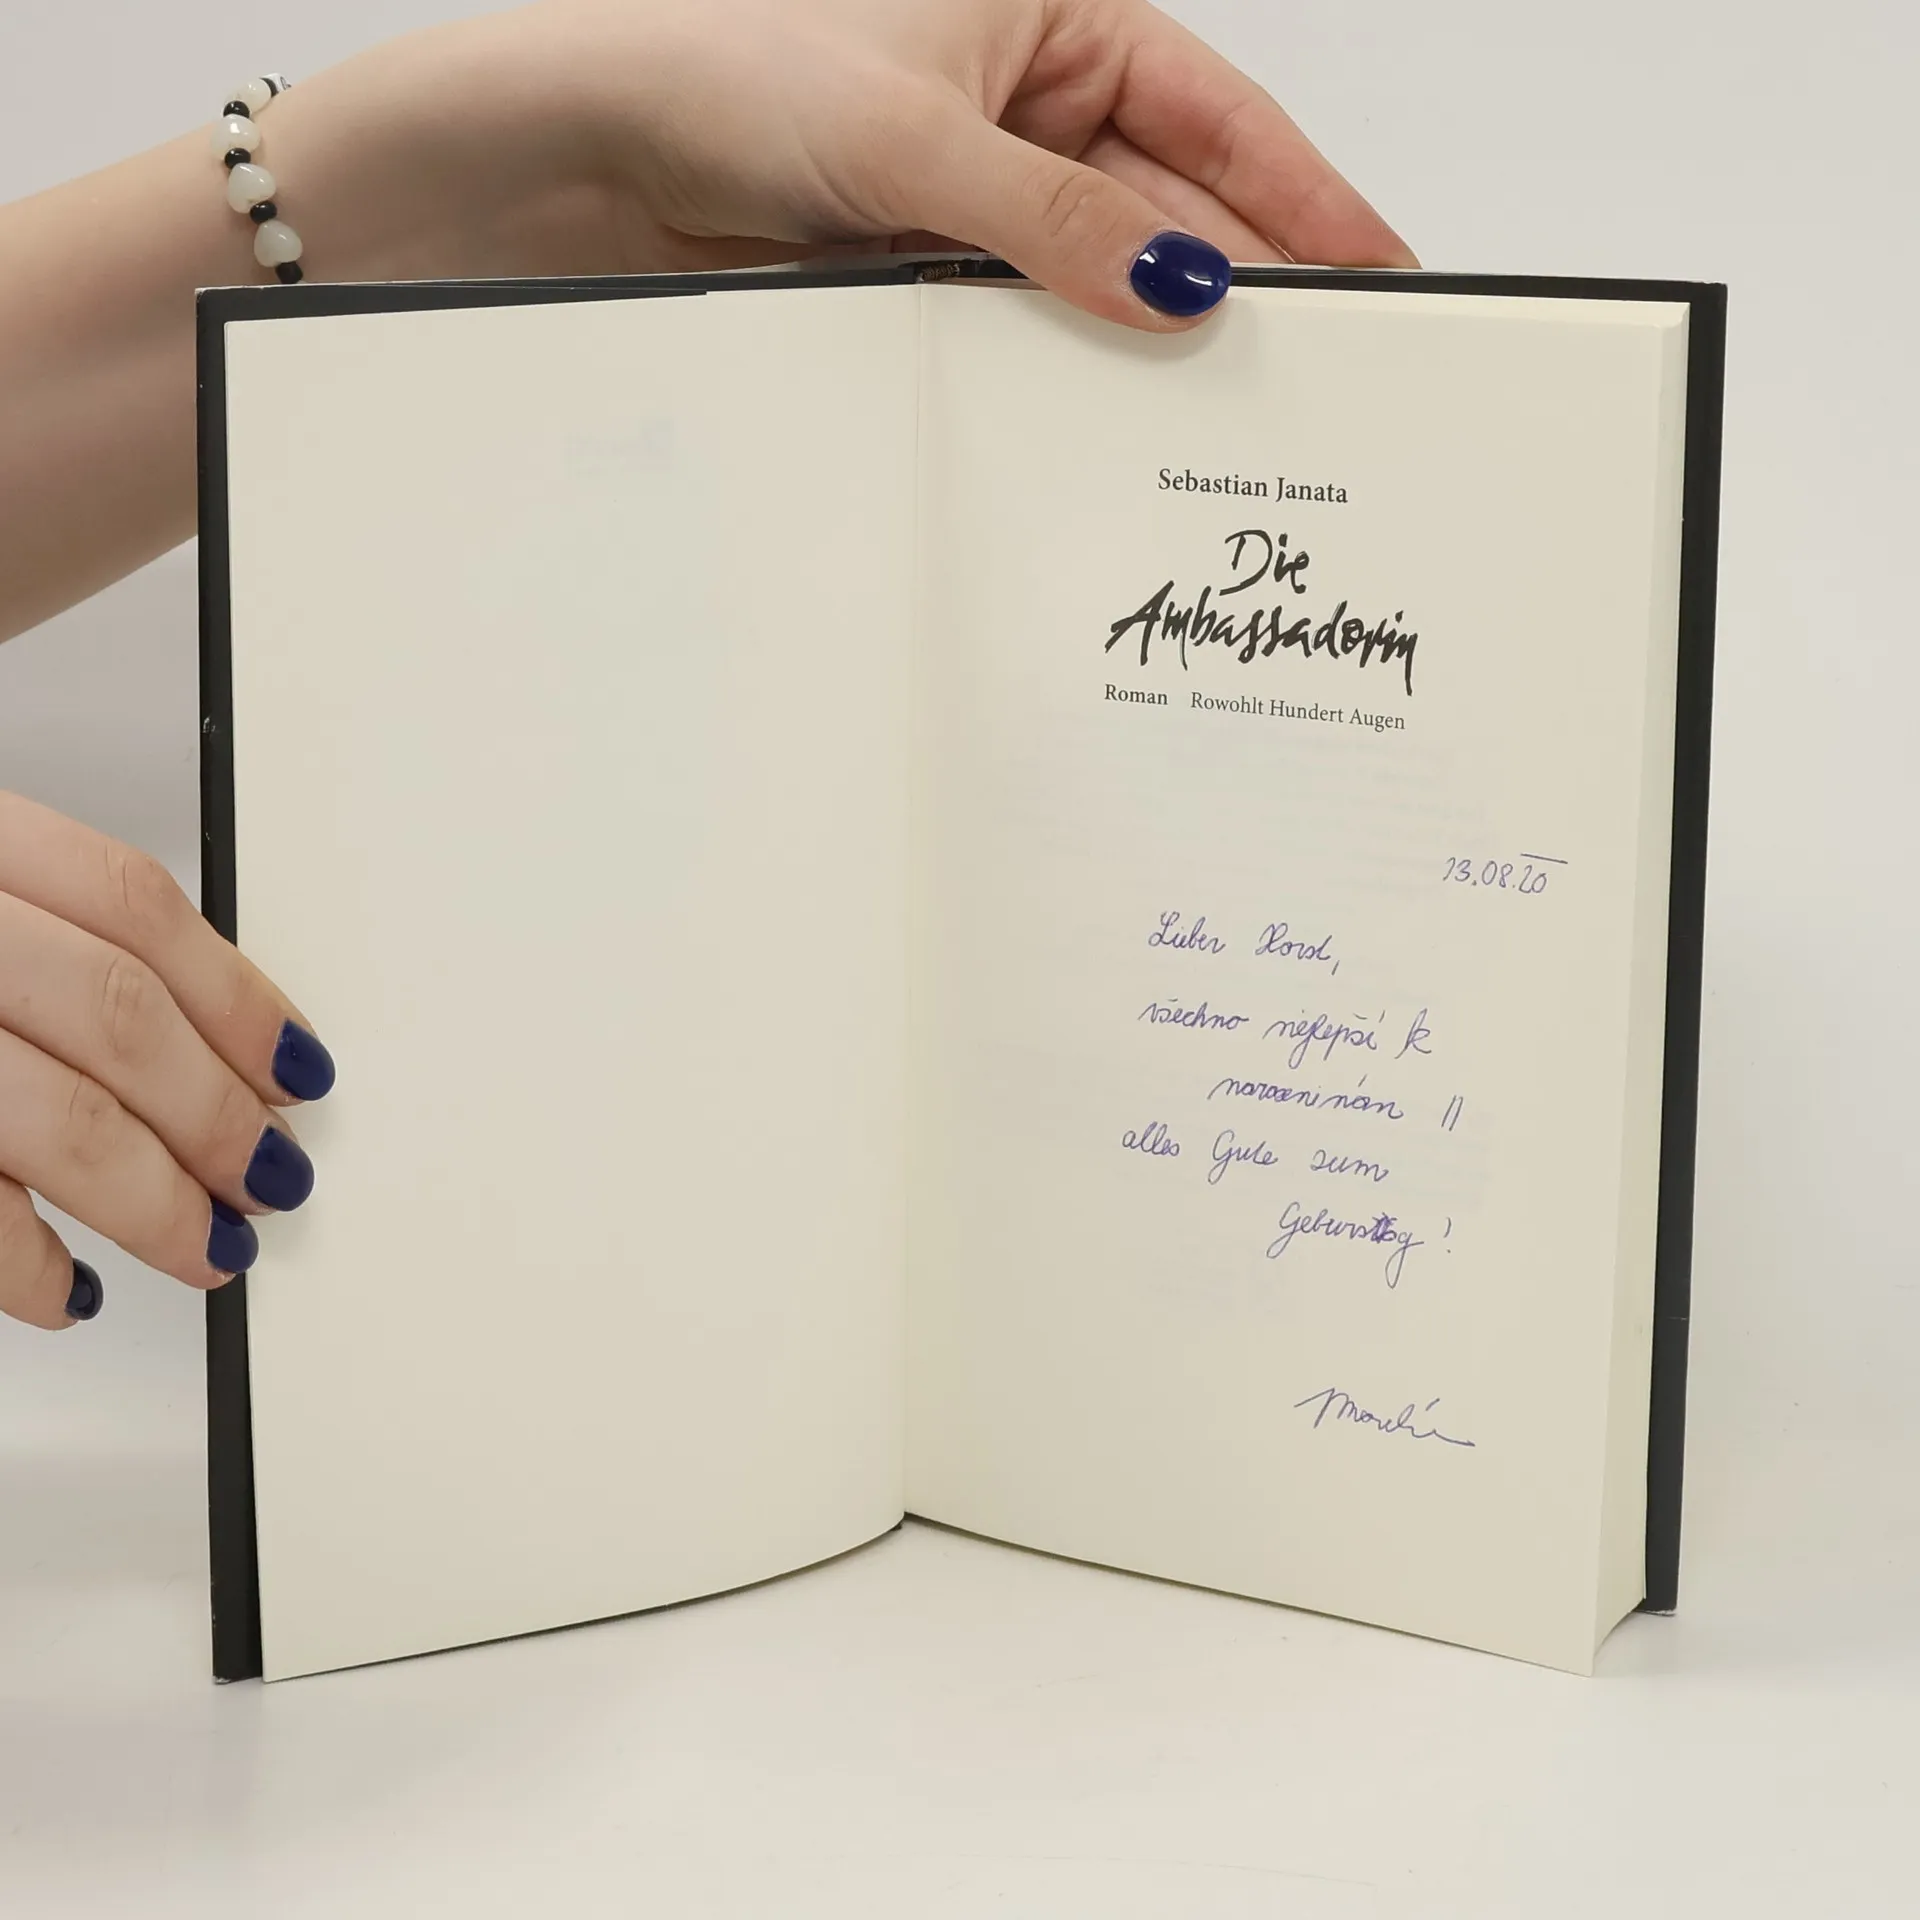 Sebastian Janata
Die
Ambassadorin
Roman Rowohlt Hundert Augen
13.08.20
Lieber Horst,
všechno nejlepší k
narozeninám !!
alles Gute zum
Geburstag !